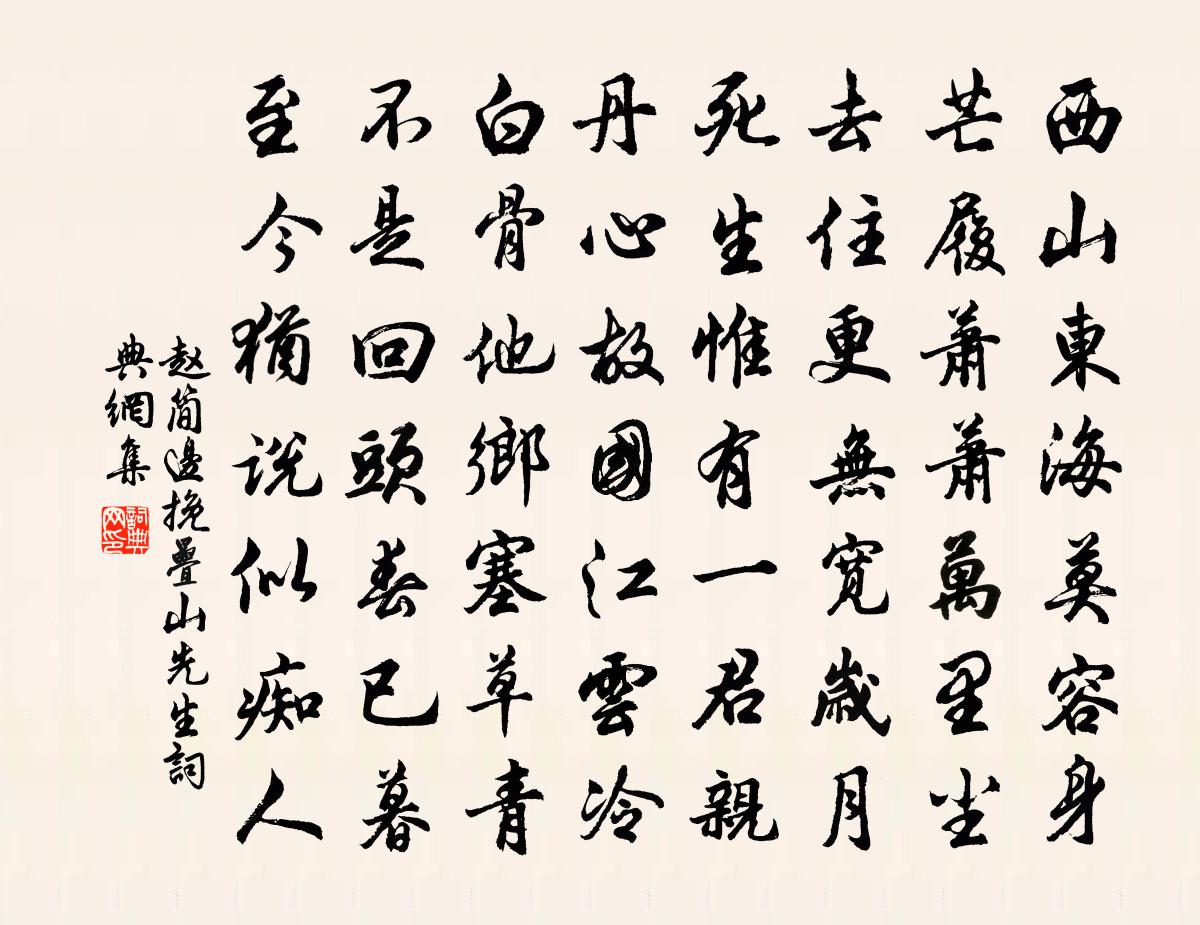 西山東海莫容身
芒履蕭蕭萬里尘
去住更無寬歲月
死生惟有一君親
丹心故國江雲冷
白骨他鄉塞草青
不是回頭春已暮
至今猶説似痴人
赵简邊挽疊山先生詞
典網集
詞典网印